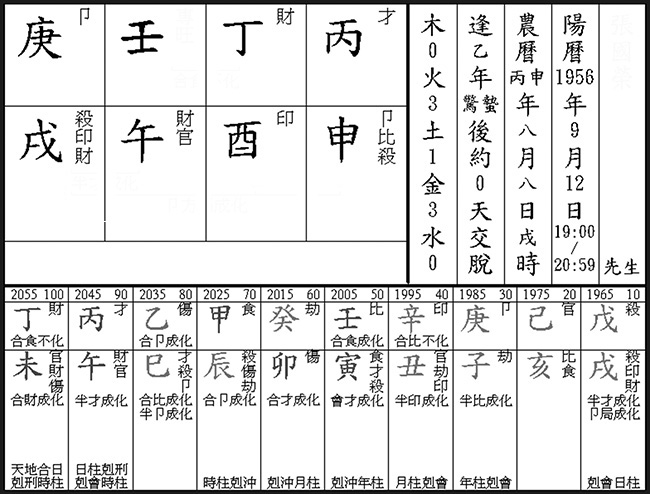 庚 卩
壬
丁 財
丙 才
戌 殺印財
午 財官
酉 印
申 卩比殺
木0火3土1金3水0
逢乙年驚蟄後約0天交脫
農曆丙申年八月八日戌時
陽曆1956年9月12日19:00/20:59
先生
2055 100
丁 財
合食不化
未 官財傷
合財成化
天地合日
剋刑時柱
2045 90
丙 才
午 財官
半才成化
日柱剋刑
剋會時柱
2035 80
乙 傷
合卩成化
巳 才殺卩
合比成化
半卩成化
2025 70
甲 食
辰 殺傷劫
合卩成化
時柱剋沖
2015 60
癸 劫
卯 傷
合才成化
剋沖月柱
2005 50
壬 比
合食成化
寅 食才殺
會才成化
剋沖年柱
1995 40
辛 印
合比不化
丑 官劫印
半印成化
月柱剋會
1985 30
庚 卩
子 劫
半比成化
年柱剋會
1975 20
己 官
亥 比食
1965 10
戊 殺
戌 殺印財
半才成化
卩局成化
剋會日柱